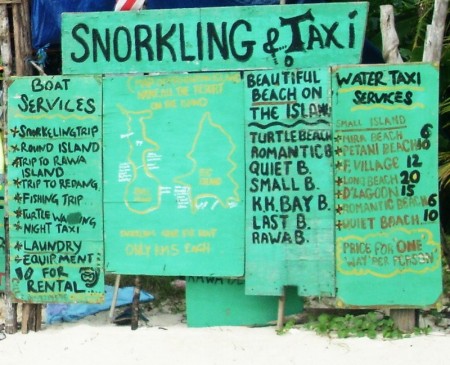 SNORKLING & TAXI
BOAT
SERVICES
SNORKELING TRIP
ROUND ISLAND
TRIP TO RAWA
ISLAND
TRIP TO REDANG
FISHING TRIP
TURTLE
NIGHT TAXI
LAUNDRY
EQUIPMENT
FOR
RENTAL
BEAUTIFUL
BEACH ON
THE ISLA
TURTLE BEACH
ROMANTIC B
QUIET B.
SMALL B.
K.K. BAY B.
LAST B.
RAWA B.
WATER TAXI
SERVICES
SMALL ISLAND
MIRA BEACH 6
PETANI BEACH 10
F. VILLAGE 12
LONG BEACH 20
D'LAGOON 15
ROMANTIC BEACH 6
QUIET BEACH 10
PRICE FOR ONE
WAY PER PERSON